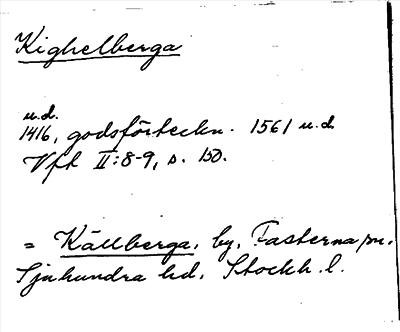 Kighelberga
u.d.
1416, godsförteckn. 1561 u.d.
Vfk II:8-9, s. 150.
= Källberga, by, Fasterna sn.
Sjuhundra hd. Stockh. l.